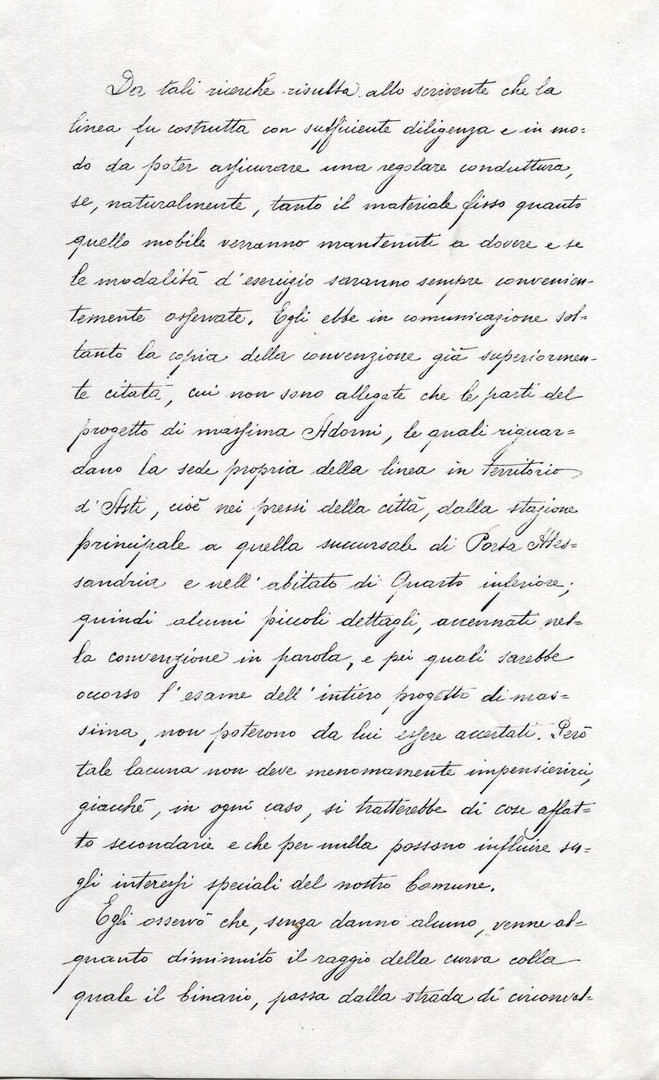 Da tali ricerche risulta allo scrivente che la
linea fu costrutta con sufficiente diligenza e in mo=
do da poter assicurare una regolare conduttura,
se, naturalmente, tanto il materiale fisso quanto
quello mobile verranno mantenuti a dovere e se
le modalità d'esercizio saranno sempre convenien=
temente osservate. Egli ebbe in comunicazione sol=
tanto la copia della convenzione già superiormen=
te citata, cui non sono allegate che le parti del
progetto di massima Adorni, le quali riguar=
dano la sede propria della linea in territorio
d'Asti, cioè nei pressi della città, dalla stazione
principale a quella succursale di Porta Ales=
sandria e nell'abitato di Quarto inferiore;
quindi alcuni piccoli dettagli, accennati nel=
la convenzione in parola, e pei quali sarebbe
occorso l'esame dell'intiero progetto di mas=
sima, non poterono da lui essere accertati. Però
tale lacuna non deve menomamente impensierirci,
giacché, in ogni caso, si tratterebbe di cose affat=
to secondarie e che per nulla possono influire su=
gli interessi speciali del nostro Comune.
Egli osservò che, senza danno alcuno, venne al=
quanto diminuito il raggio della curva colla
quale il binario, passa dalla strada di circonval=